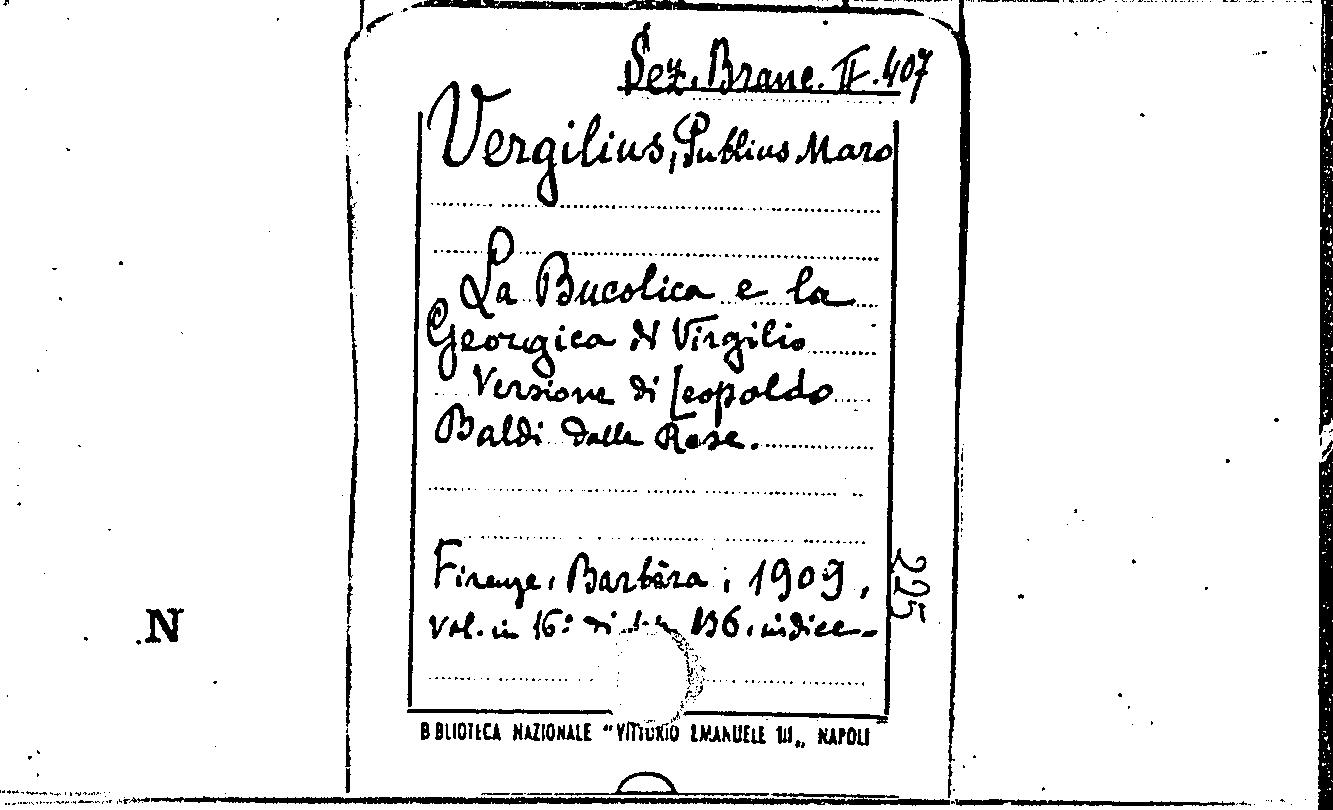 Sez. Branc. II. 407
Vergilius, Publius Maro
La Bucolica e la
Georgica di Virgilio
Versione di Leopoldo
Baldi dalle Rose.
Firenze, Barbèra, 1909,
vol. in 16° di 136. indice
225
N
BIBLIOTECA NAZIONALE "VITTORIO EMANUELE III„ NAPOLI